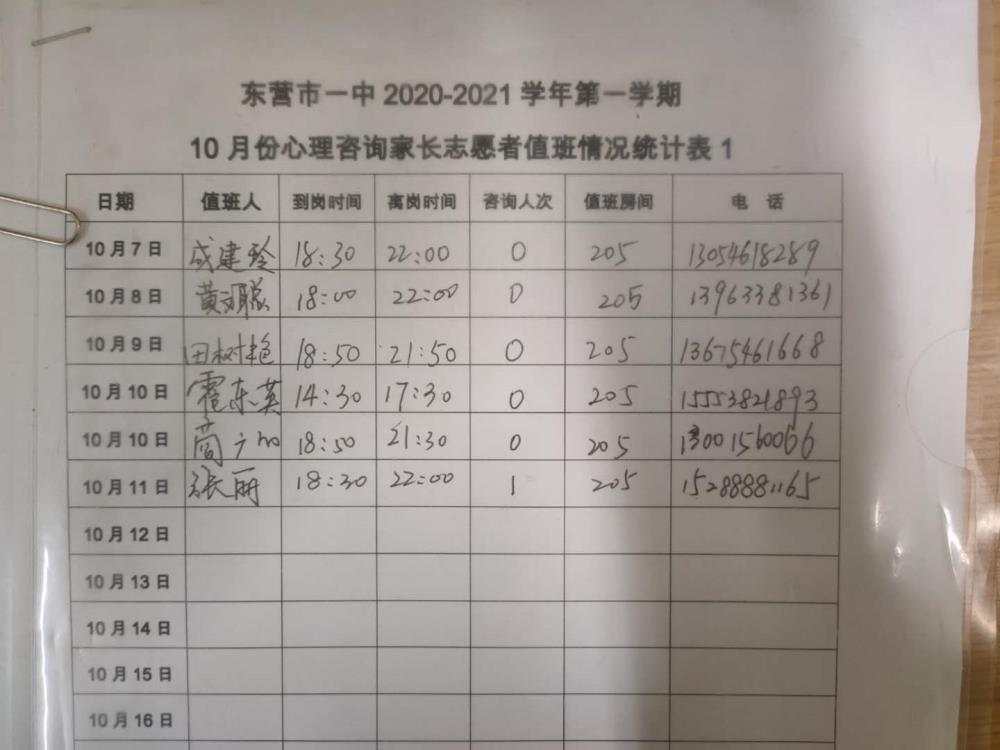 东营市一中 2020-2021 学年第一学期
10 月份心理咨询家长志愿者值班情况统计表 1
日期 值班人 到岗时间 离岗时间 咨询人次 值班房间 电 话
10 月 7 日 成建玲 18:30 22:00 0 205 13054618289
10 月 8 日 黄聪 18:00 22:00 0 205 13963381361
10 月 9 日 田树艳 18:50 21:50 0 205 13675461668
10 月 10 日 霍东英 14:30 17:30 0 205 15553821893
10 月 10 日 18:50 21:30 0 205 13001560066
10 月 11 日 张丽 18:30 22:00 1 205 15288881165
10 月 12 日
10 月 13 日
10 月 14 日
10 月 15 日
10 月 16 日